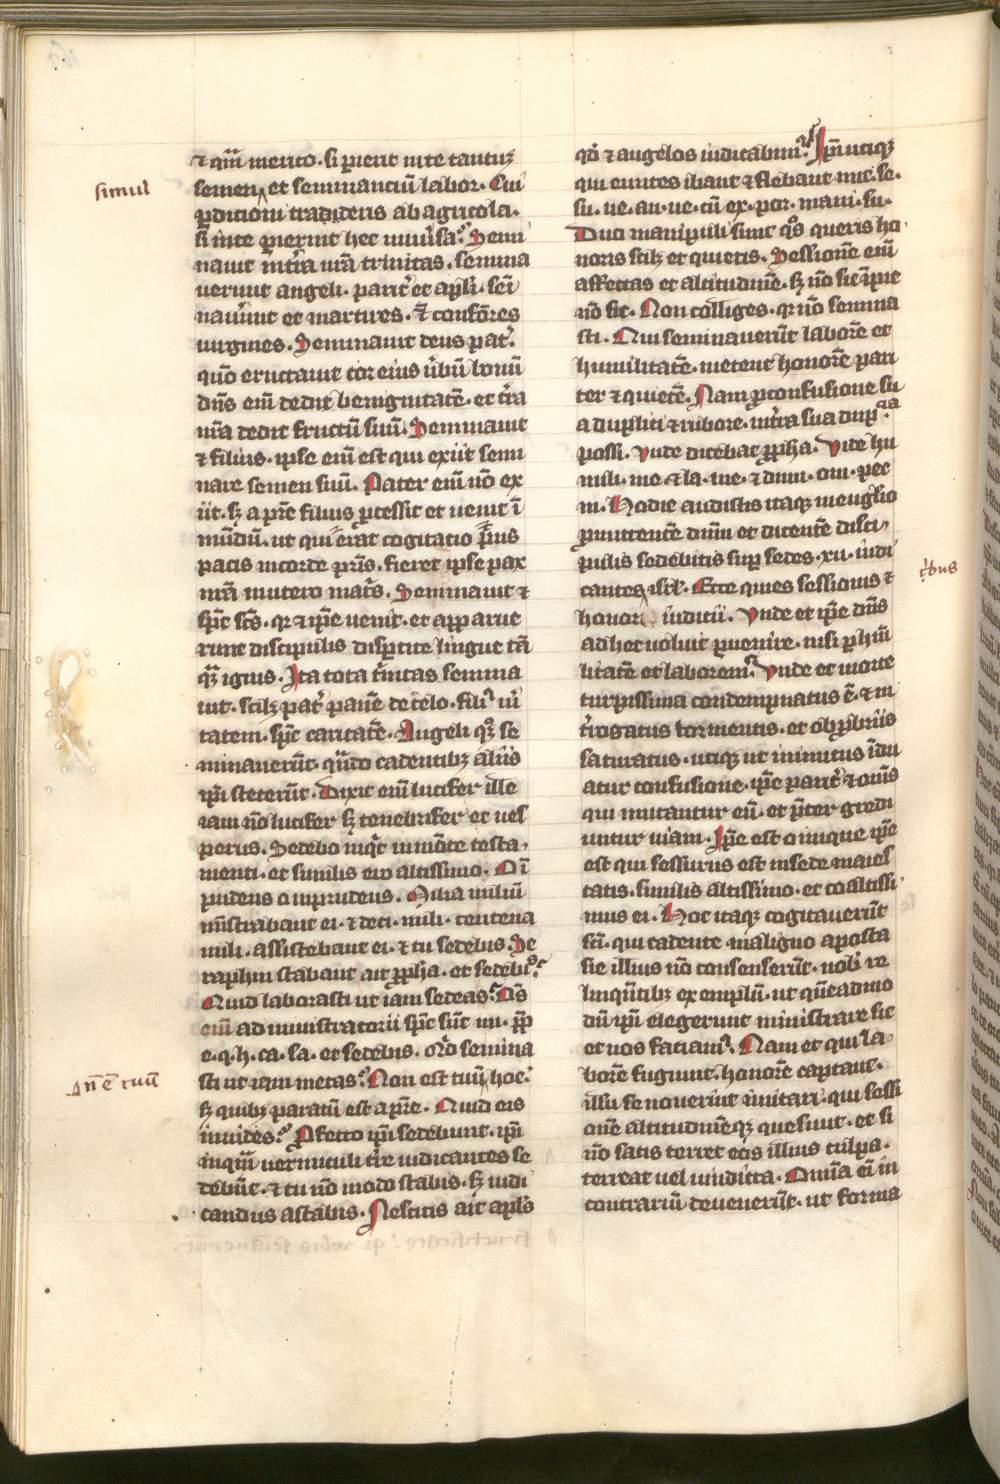 ⁊ qm̄ merito. si perierit in te tantuꝫ
simul
semen et seminanciū labor. Cui
ꝑdicioni tradideris ab agricola.
si in te perierint hec uniūsa? Semi
nauit in tr̄a nr̄a trinitas. semina
uerunt angeli. parit̄ et apl̄i. semi
nauerunt et martires. ⁊ confores
uirgines. Seminauit deus pat̄.
quō eructauit cor eius ūbū bonū
dn̄s em̄ dedit benignitatē. et tr̄a
nr̄a dedit fructū suū. Seminauit
⁊ filius. ipse em̄ est qui exiit semi
nare semen suū. Pater em̄ nō ex
iit. sꝫ a pr̄e filius ꝓcessit et uenit ī
mūdū. ut qui erat cogitatio prius
pacis in corde pr̄is. fieret ipse pax
nr̄a in utero mat̄s. Seminauit ⁊
sp̄c sc̄s. qr ⁊ ip̄e uenit. et apparue
runt discipulis disꝑtite lingue tā
qꝫ ignis. Ita tota t̄nitas semina
uit. scilꝫ pat̄ panē de celo. fili᷒ ūi
tatem. sp̄c caritatē. Angeli qꝫ se
minauerūt. qn̄do cadentibꝫ alijs
ip̄i steterūt. Dixit em̄ lucifer ille
iam nō lucifer sꝫ tenebrifer et ues
perus. Sedebo inqt in mōte testa
menti. et similis ero altissimo. O ī
prudens o inprudens. Milia miliū
mīstrabant ei. ⁊ deci. mili. centena
mili. assistebant ei. ⁊ tu sedebis. Se
raphin stabant ait ꝓpha. et sedebis?
Quid laborasti ut iam sedeas? Oīs
em̄ administratorii sp̄c sūt in. ꝓp
e. q. h. ca. sa. et sedebis. Qd semina
sti ut iam metas? Non est tuū hoc.
nē tuū
sꝫ quibꝫ paratū est a pr̄e. Quid eis
inuides? Ꝓfecto ip̄i sedebunt. ip̄i
inqm̄ uermiculi t̄re iudicantes se
debūt. ⁊ tu nō modo stabis. sꝫ iudi
candus astabis. Nescitis ait apl̄s
qd ⁊ angelos iudicabim᷒? Ip̄i utiqꝫ
qui euntes ibant ⁊ flebant mit. se.
su. ue. au. ue. cū ex. por. mani. su.
Duo manipuli sunt qs queris ho
noris scilꝫ et quietis. Sessionē em̄
affectas et altitudinē. sꝫ nō sic īpie
nō sic. Non colliges. qr nō semina
sti. Qui seminauerūt laborē et
humilitatē. metent honorē pari
ter ⁊ quietē. Nam ꝓ confusione su
a duplici ⁊ rubore. in tr̄a sua dupꝉia
possi. Unde dicebat ꝓpha. Vide hu
mili. me. ⁊ la. me. ⁊ dimi. om. pec
m. Hodie audistis itaqꝫ in euglio
ꝓmittentē dn̄m et dicentē disci
pulis sedebitis suꝑ sedes. xii. iudi
t̄bus
cantes isrl̄. Ecce quies sessionis ⁊
honor iudicii. Unde et ip̄e dn̄s
ad hec uoluit ꝑuenire. nisi ꝑ hūi
litatē et laborem? Unde et morte
turpissima condempnatus ē. ⁊ in
t̄rogatus tormentis. et obprobriis
saturatus. utiqꝫ ut inimicus īdu
atur confusione. ip̄e parit̄ ⁊ oms
qui imitantur eū. et pr̄ter gredi
untur uiam. Ip̄e est o inique ip̄e
est qui sessurus est in sede maies
tatis. similis altissimo. et coaltissi
mus ei. Hoc itaqꝫ cogitauerūt
sc̄i. qui cadente maligno aposta
sie illius nō consenserūt. nob̄ re
linqūtibꝫ exemplū. ut queadmo
dū ip̄i elegerunt ministrare sic
et nos faciam᷒. Nam et qui la
borē fugiunt. honorē captant.
illū se nouerint imitari. qui sessi
onē altitudinēqꝫ quesiuit. et si
nō satis terret eos illius culpa.
terreat uel uindicta. Omīa ei in
contrariū deuenerūt. ut forma